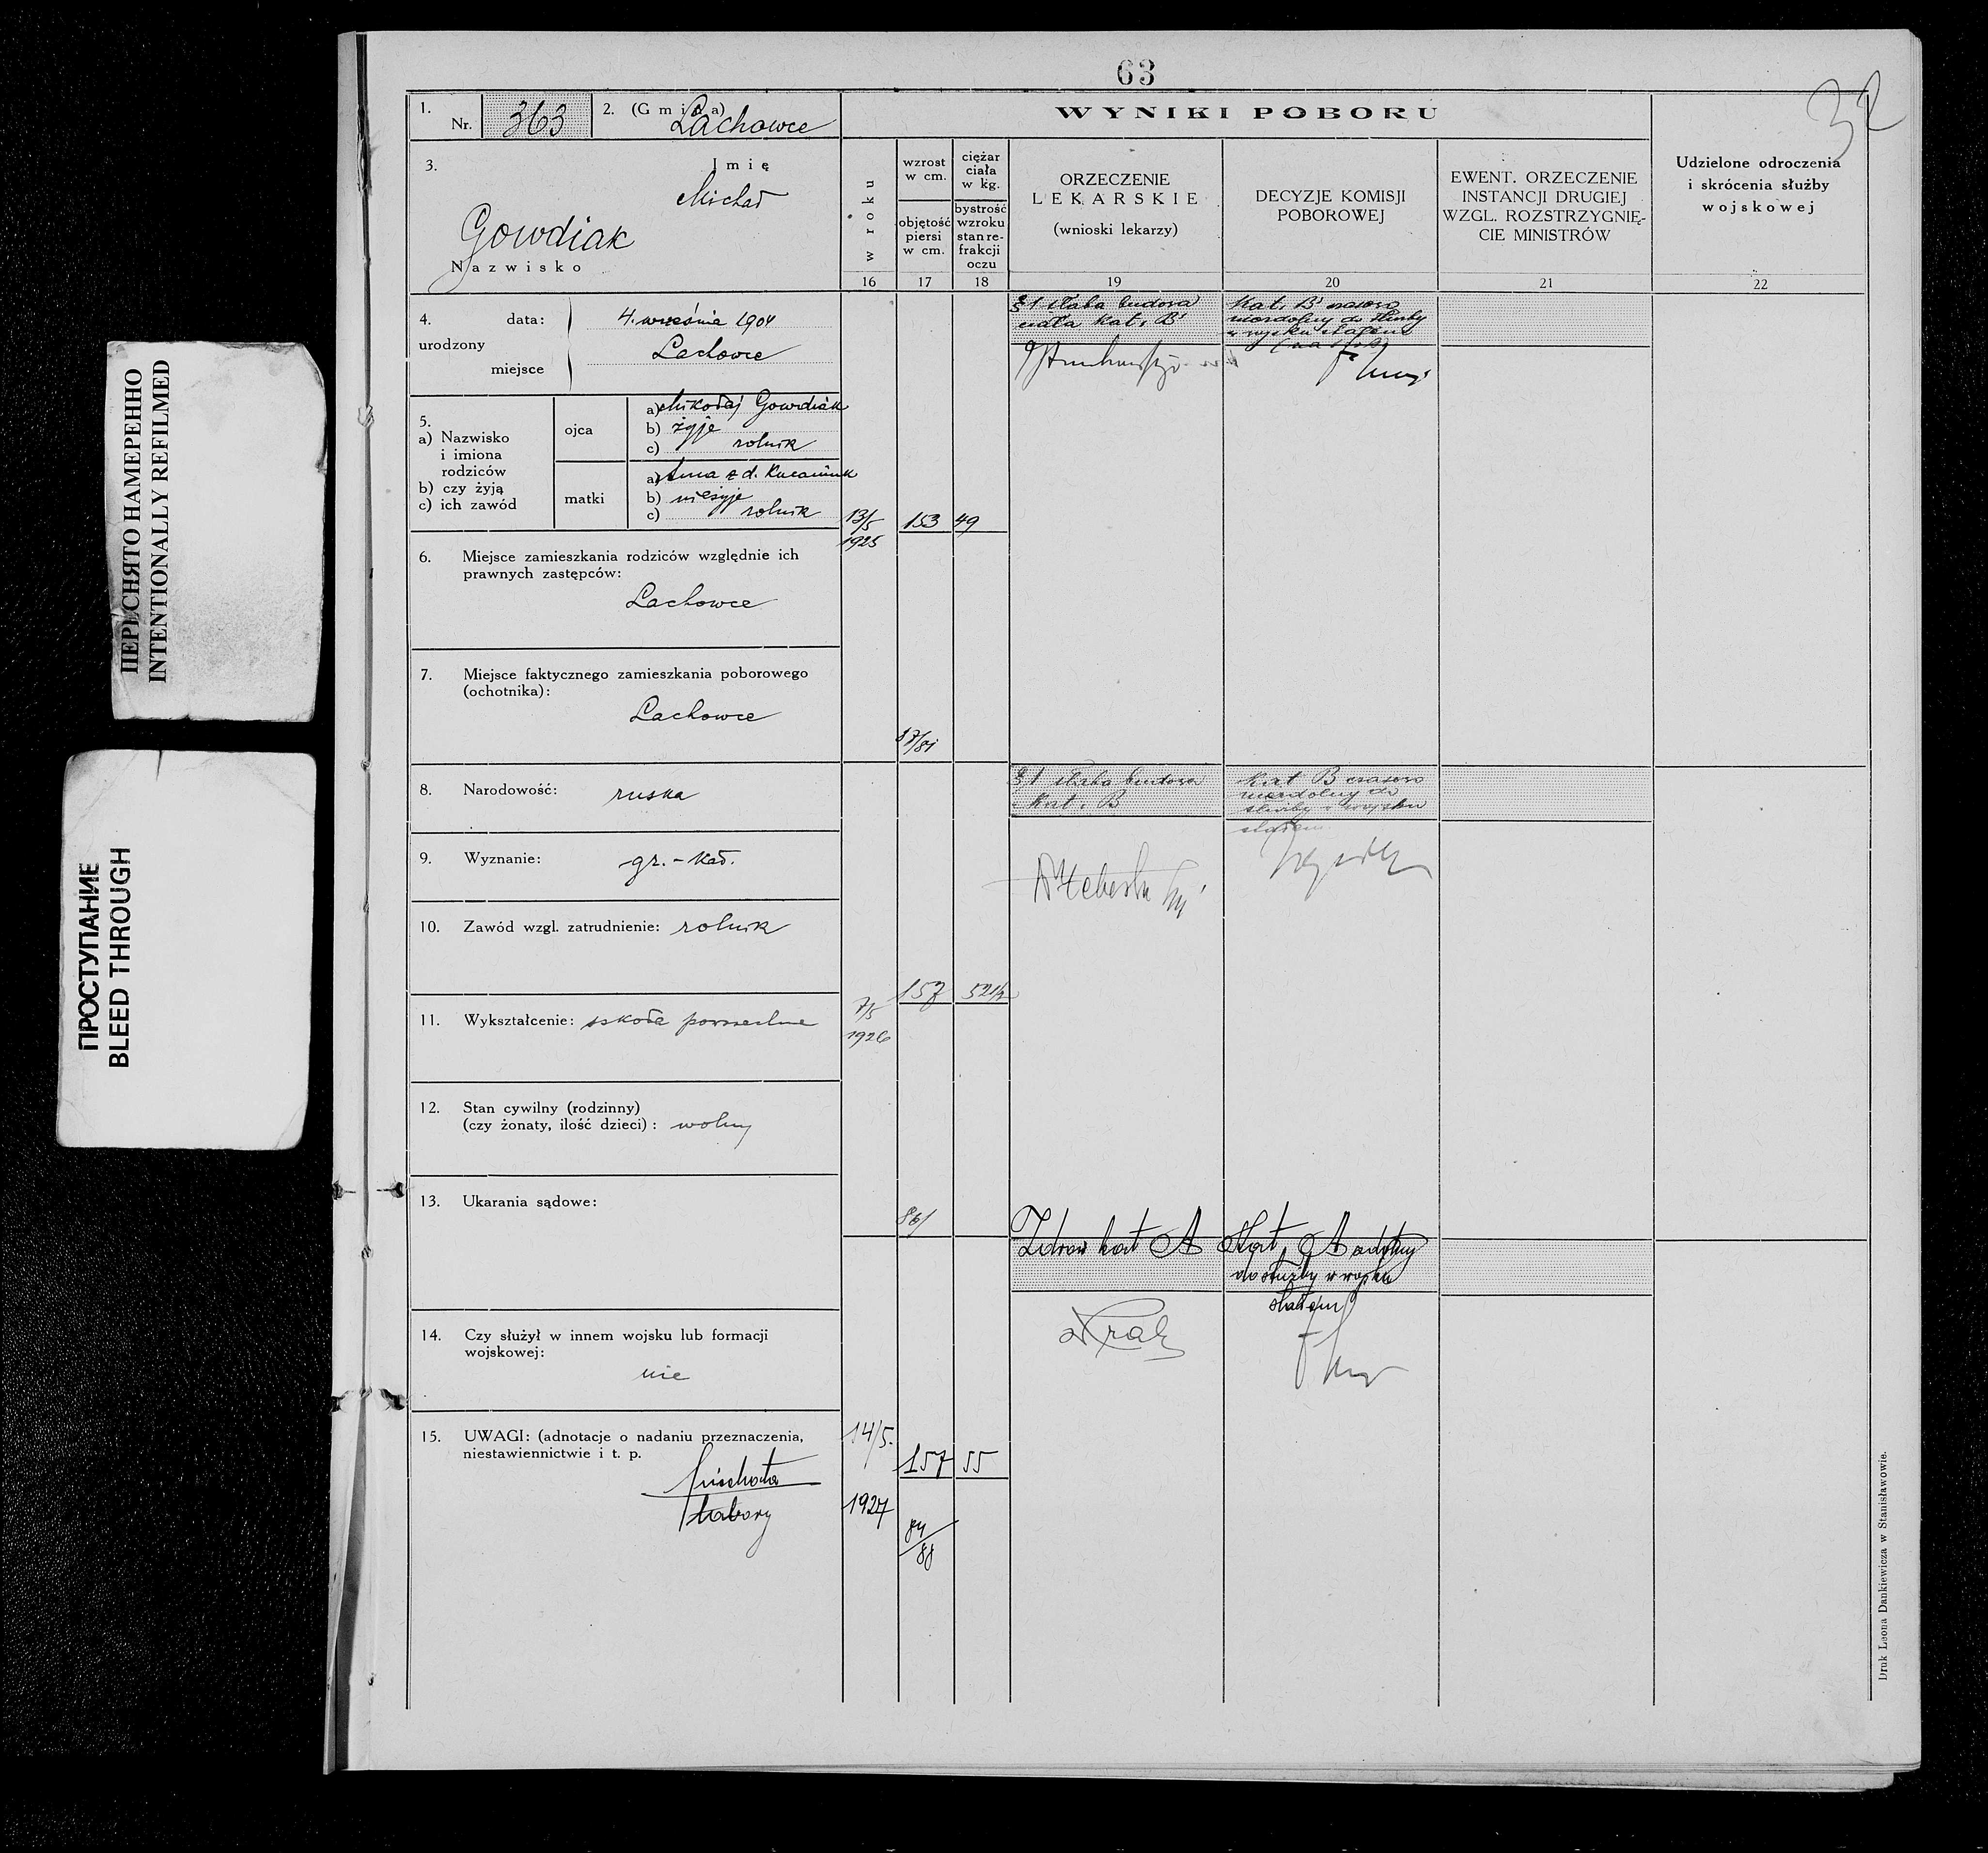 63
32
1. Nr. 363
2. (Gmina) Lachowce
WYNIKI POBORU
3. Imię
Michał
Gowdiak
Nazwisko
w roku
wzrost w cm.
objętość piersi w cm.
ciężar ciała w kg.
bystrość wzroku stan refrakcji oczu
ORZECZENIE
LEKARSKIE
(wnioski lekarzy)
DECYZJE KOMISJI
POBOROWEJ
EWENT. ORZECZENIE
INSTANCJI DRUGIEJ
WZGL. ROZSTRZYGNIĘ-
CIE MINISTRÓW
Udzielone odroczenia
i skrócenia służby
wojskowej
16 17 18 19 20 21 22
4. urodzony
data: 4. września 1904
miejsce Lachowce
§ 1 słaba budowa
ciała kat. B
Kat. B czasowo
niezdolny do służby
w wojsku stałem
5.
a) Nazwisko
i imiona
rodziców
b) czy żyją
c) ich zawód
ojca
a) Mikołaj Gowdiak
b) żyje
c) rolnik
matki
a) Anna z d.
b) nieżyje
c) rolnik
13/5
1925
153 49
6. Miejsce zamieszkania rodziców względnie ich
prawnych zastępców:
Lachowce
7. Miejsce faktycznego zamieszkania poborowego
(ochotnika):
Lachowce
8. Narodowość: ruska
§ 1 słaba budowa
Kat. B
Kat B czasowo
niezdolny do
służby w wojsku
stałem
9. Wyznanie: gr.-kat.
10. Zawód wzgl. zatrudnienie: rolnik
7/5
1926
157 52½
11. Wykształcenie: szkoła powszechna
12. Stan cywilny (rodzinny)
(czy żonaty, ilość dzieci): wolny
13. Ukarania sądowe:
Zdrów kat A
Kat. A zdolny
do służby w wojsku
stałem
14. Czy służył w innem wojsku lub formacji
wojskowej:
nie
15. UWAGI: (adnotacje o nadaniu przeznaczenia,
niestawiennictwie i t. p.
piechota
tabory
14/5.
1927
157 55
84/88
Druk Leona Dankiewicza w Stanisławowie.
ПЕРЕСНЯТО НАМЕРЕННО
INTENTIONALLY REFILMED
ПРОСТУПАНИЕ
BLEED THROUGH